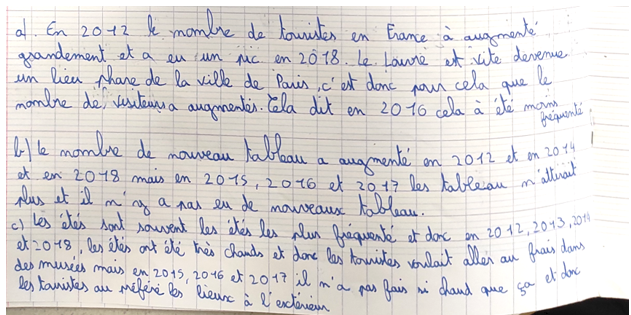 a). En 2012 le nombre de touristes en France à augmenté
grandement et a eu un pic en 2018. Le Louvre est vite devenue
un lieu phare de la ville de Paris, c'est donc pour cela que le
nombre de visiteurs a augmentés. Cela dit en 2016 cela à été moins
fréquenté
b) le nombre de nouveau tableau a augmenté en 2012 et en 2014
et en 2018 mais en 2015, 2016 et 2017 les tableau n'attirait
plus et il n'ny a pas eu de nouveaux tableau.
c) Les étés sont souvent les étés les plus fréquenté et donc en 2012, 2013, 2014
et 2018, les étés ont été très chauds et donc les touristes voulait allés au frais dans
des musées mais en 2015, 2016 et 2017 il n'a pas fais si chaud que ça et donc
les touristes au préféré les lieux à l'extérieur